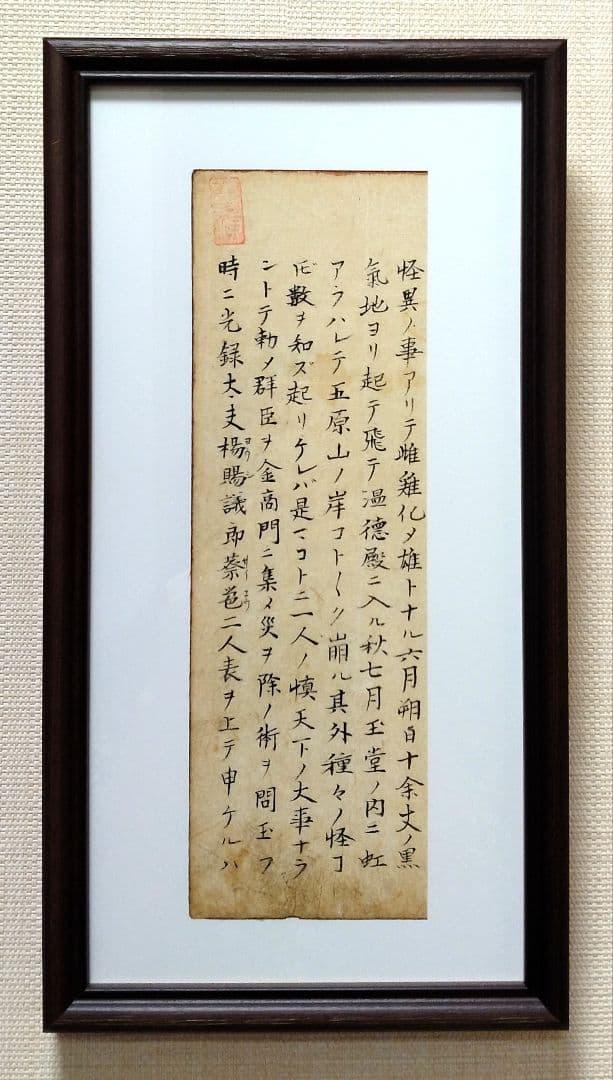 怪異ノ事アリテ雌雞化〆雄トナル六月朔日十余丈ノ黒
氣地ヨリ起テ飛テ温德殿ニ入ル秋七月玉堂ノ内ニ虹
アラハレテ五原山ノ岸コト〱ク崩ル其外種々ノ怪コ
数ヲ知ズ起リケレバ是マコトニ一人ノ慎天下ノ大事ナラ
ントテ勅〆群臣ヲ金商門ニ集〆災ヲ除ノ術ヲ問玉フ
時ニ光録大夫楊賜議郎蔡邕二人表ヲ上テ申ケルハ